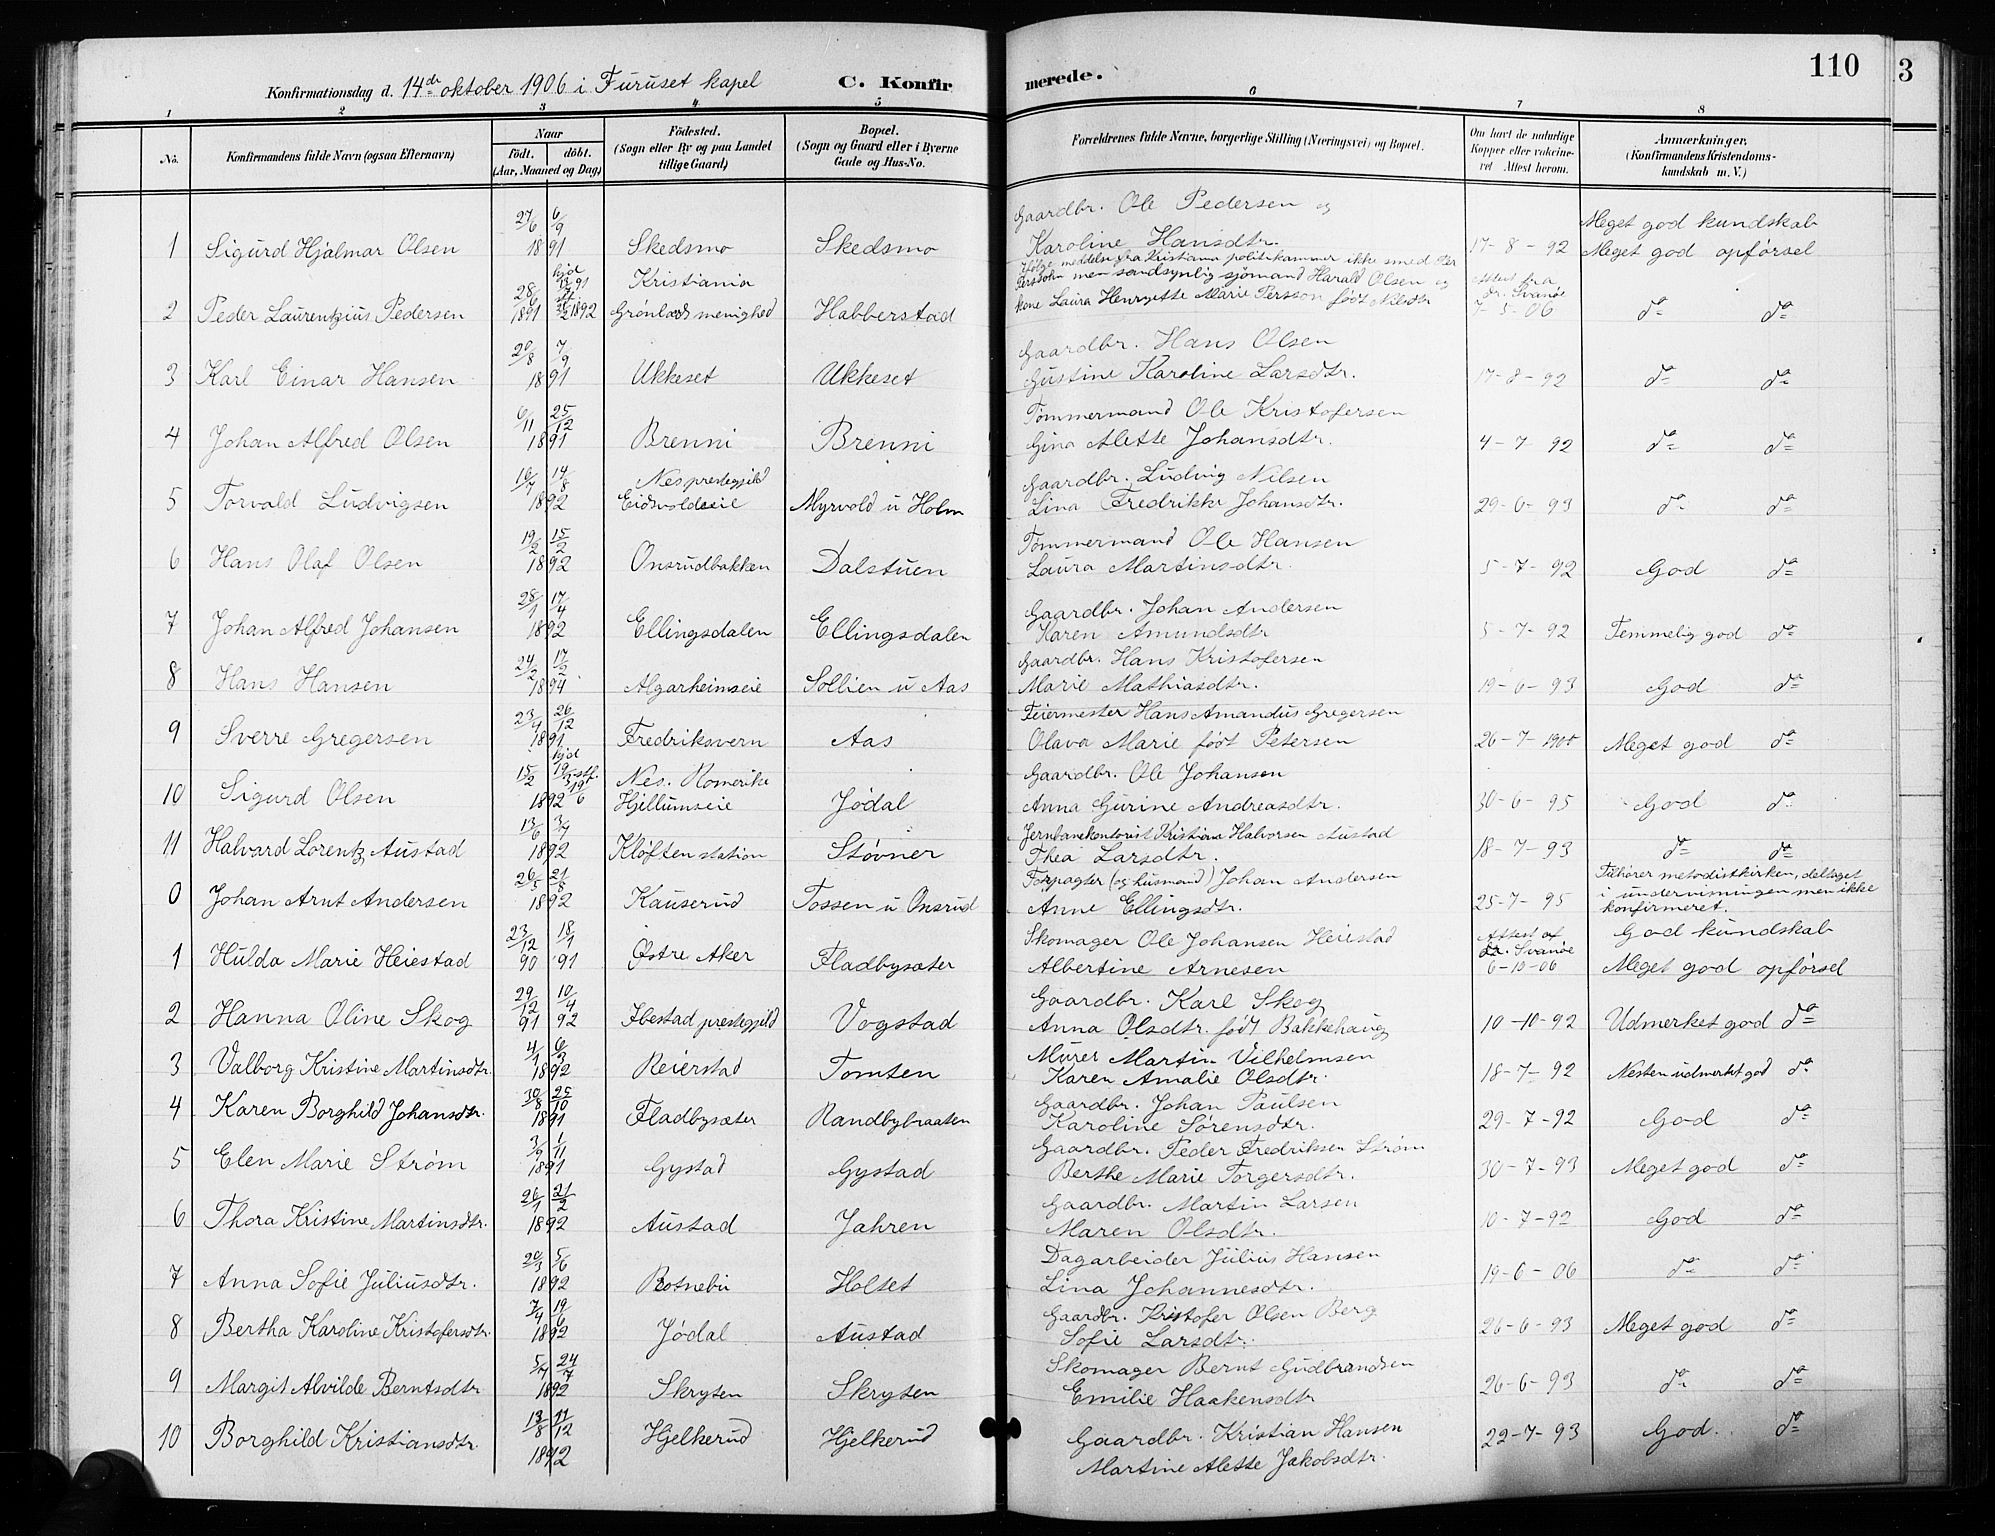 Konfirmationsdag d. 14de oktober 1906 i Furuset kapel C. Konfirmerede. 110 3
1 2 3 4 5 6 7 8
No. Konfirmandens fulde Navn (ogsaa Efternavn) Naar født. døbt. (Aar, Maaned og Dag) Fødested. (Sogn eller By og paa Landet tillige Gaard) Bopæl. (Sogn og Gaard eller i Byerne Gade og Hus-No. Forældrenes fulde Navne, borgerlige Stilling (Næringsvei) og Bopæl. Om havt de naturlige Kopper eller vakcineret Attest herom. Anmærkninger. (Konfirmandens Kristendomskundskab m. V.)
27/6 6/9 Gaardbr. Ole Pedersen og Meget god kundskab
1 Sigurd Hjalmar Olsen 1891 Skedsmo Skedsmo Karoline Hansdtr. 17-8-92 Meget god opførsel
Ifølge meddelse fra Kristiania politikammer ikke smed Per
28/6 hjd 91 Kristiania Persson men sandsynlig sjømand Harald Olsen og attest fra dr. Svanøe
2 Peder Laurentzius Pedersen 1891 1892 Grønlands menighed Habberstad kone Laura Henryette Marie Persson født Nilsdtr 7-5-06 do do
20/8 7/9 Gaardbr. Hans Olsen
3 Karl Einar Hansen 1891 Ukkeset Ukkeset Gustine Karoline Larsdtr. 17-8-92 do do
6/11 25/12 Tømmermand Ole Kristofersen
4 Johan Alfred Olsen 1891 Brenni Brenni Gina Alette Johansdtr. 4-7-92 do do
16/7 14/8 Nes prestegjeld Gaardbr. Ludvig Nilsen
5 Torvald Ludvigsen 1892 Eidsvoldseie Myrvold u Holm Lina Fredrikke Johansdtr. 29-6-93 do do
19/2 15/2 Tømmermand Ole Hansen
6 Hans Olaf Olsen 1892 Onsrudbakken Dalstuen Laura Martinsdtr. 5-7-92 God do
28/1 17/4 Gaardbr. Johan Andersen
7 Johan Alfred Johansen 1892 Ellingsdalen Ellingsdalen Karen Amundsdtr 5-7-92 Temmelig god do
24/2 17/2 Gaardbr. Hans Kristofersen
8 Hans Hansen 1894 Algarheimseie Sollien u Aas Marie Mathiasdtr. 19-6-93 God do
23/4 26/12 Feiermester Hans Amandus Gregersen
9 Sverre Gregersen 1891 Fredriksvern Aas Olava Marie født Petersen 26-7-1900 Meget god do
15/2 hjd stf. 19/6 Nes. Romerike Gaardbr. Ole Johansen
10 Sigurd Olsen 1892 Hjellumseie Jødal Anna Gurine Andreasdtr. 30-6-95 God do
13/6 3/7 Jernbanekontorist Kristian Halvorsen Austad
11 Halvard Lorentz Austad 1892 Kløften station Støvner Thea Larsdtr. 18-7-93 do do
26/5 21/8 Forpagter (og husmand) Johan Andersen Tilhører metodistkirken, deltaget
0 Johan Arnt Andersen 1892 Kauserud Fossen u Onsrud Anne Ellingsdtr. 25-7-95 i undervisningen men ikke konfirmeret.
23/12 18/1 Skomager Ole Johansen Heiestad Attest af dr. Svanøe God kundskab
1 Hulda Marie Heiestad 90 91 Østre Aker Fladbysæter Albertine Arnesen 6-10-06 Meget god opførsel
29/12 10/4 Gaardbr. Karl Skog
2 Hanna Oline Skog 91 92 Ibestad prestegjeld Vogstad Anna Olsdtr. født Bakkehaug 10-10-92 Udmerket god do
4/1 6/3 Murer Martin Vilhelmsen
3 Valborg Kristine Martinsdtr. 1892 Reierstad Tomten Karen Amalie Olsdtr. 18-7-92 Nesten udmerket god do
30/8 25/10 Gaardbr. Johan Paulsen
4 Karen Borghild Johansdtr. 1891 Fladbysæter Randbybraaten Karoline Sørensdtr. 29-7-92 God do
3/9 1/11 Gaardbr. Peder Fredriksen Strøm
5 Elen Marie Strøm 1891 Gystad Gystad Berthe Marie Torgersdtr. 30-7-93 Meget god do
26/1 21/2 Gaardbr. Martin Larsen
6 Thora Kristine Martinsdtr. 1892 Austad Jahren Maren Olsdtr. 10-7-92 God do
20/3 5/6 Dagarbeider Julius Hansen
7 Anna Sofie Juliusdtr. 1892 Botnebu Holset Lina Johannesdtr. 19-6-06 do do
7/4 19/6 Gaardbr. Kristofer Olsen Berg
8 Bertha Karoline Kristofersdtr. 1892 Jødal Austad Sofie Larsdtr. 26-6-93 Meget god do
5/7 24/7 Skomager Bernt Gudbrandsen
9 Margit Alvilde Berntsdtr 1892 Skrysen Skrysen Emilie Haakensdtr 26-6-93 do do
13/8 11/12 Gaardbr. Kristian Hansen
10 Borghild Kristiansdtr. 1892 Hjelkerud Hjelkerud Martine Alette Jakobsdtr. 22-7-93 God. do